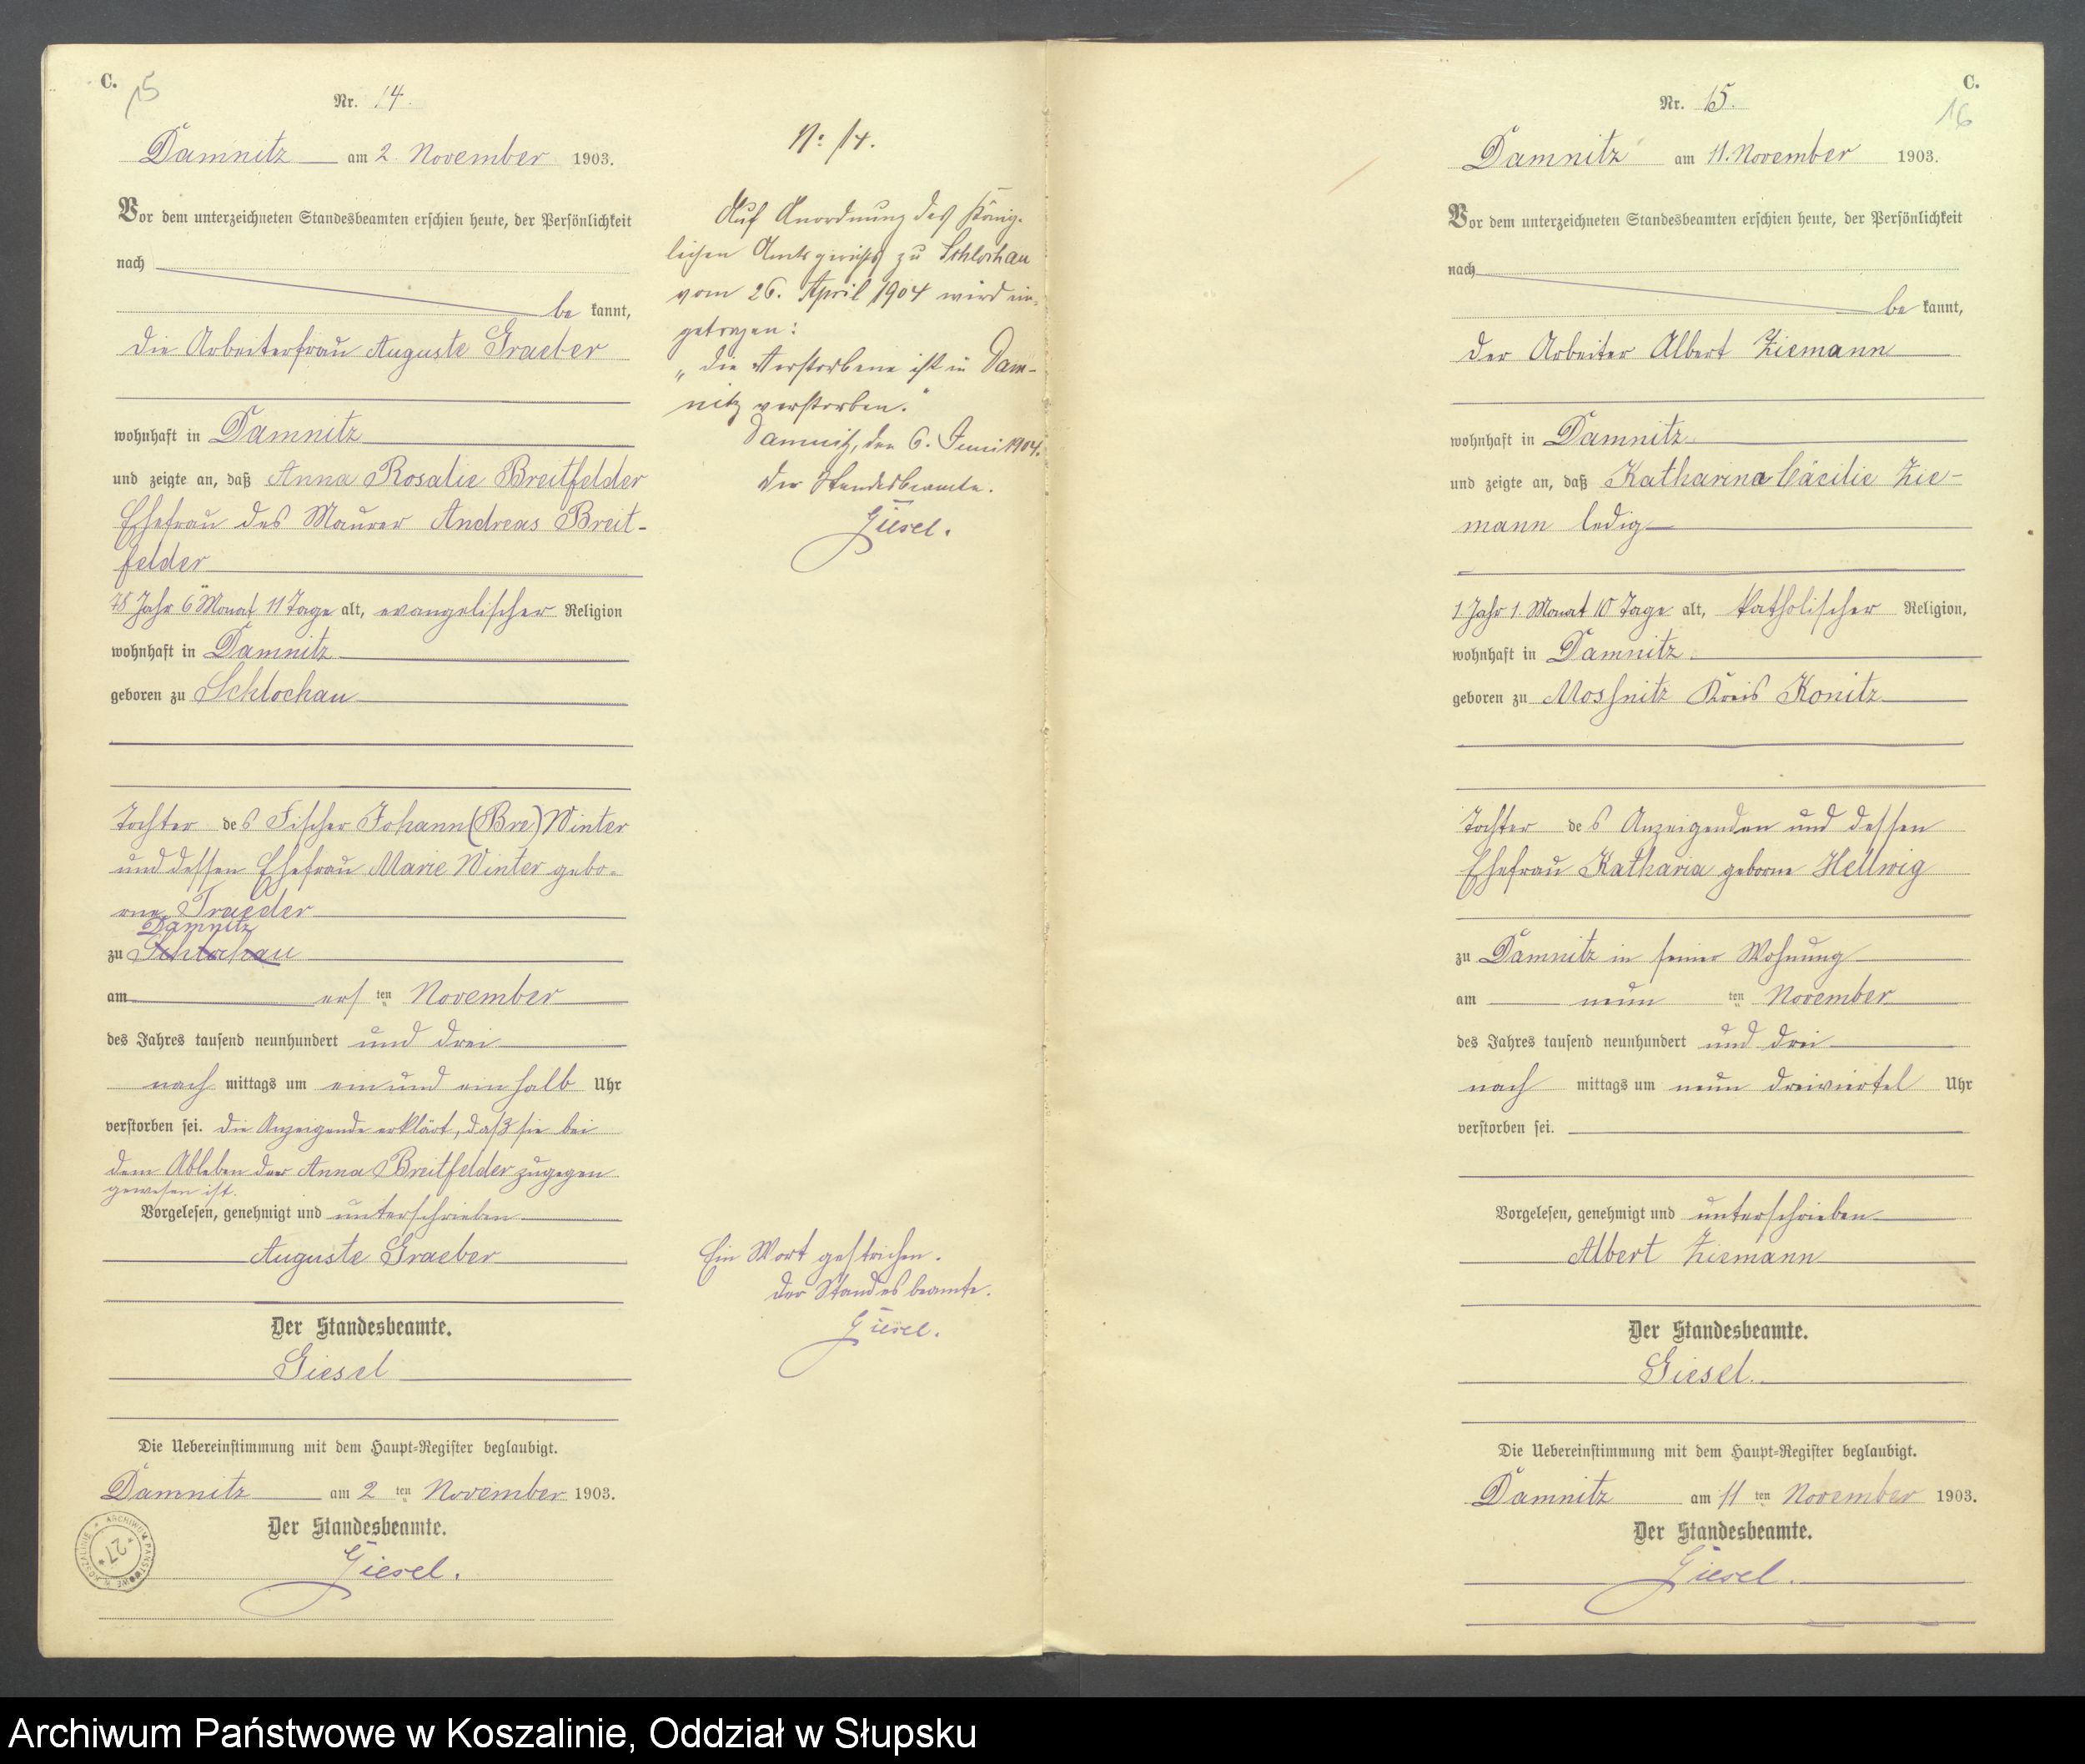 C.
15
Nr. 14.
Damnitz am 2. November 1903.
Vor dem unterzeichneten Standesbeamten erschien heute, der Persönlichkeit
nach
be kannt,
die Arbeiterfrau Auguste Graeber
wohnhaft in Damnitz
und zeigte an, daß Anna Rosalie Breitfelder
Ehefrau des Maurer Andreas Breit-
felder
78 Jahr 6 Monat 11 Tage alt, evangelischer Religion
wohnhaft in Damnitz
geboren zu Schlochau
Tochter des Fischer Johann (Bre) Winter
und dessen Ehefrau Marie Winter gebo-
rne
Damnitz
zu Schlochau
am ersten November
des Jahres tausend neunhundert und drei
nach mittags um ein und ein halb Uhr
verstorben sei. Die Anzeigende erklärt, daß sie bei
dem Ableben der Anna Breitfelder zugegen
gewesen ist.
Vorgelesen, genehmigt und unterschrieben
Auguste Graeber
Der Standesbeamte.
Giesel
Die Uebereinstimmung mit dem Haupt-Register beglaubigt.
Damnitz am 2 ten November 1903.
Der Standesbeamte.
Giesel.
ARCHIWUM PAŃSTWOWE W KOSZALINIE
* 27 *
No 14.
Auf Anordnung des König-
lichen Amtsgerichts zu Schlochau
vom 26. April 1904 wird ein-
getragen:
„Die Verstorbene ist in Dam-
nitz verstorben."
Damnitz, den 6. Juni 1904.
Der Standesbeamte.
Giesel.
Ein Wort gestrichen.
Der Standesbeamte.
Giesel.
C.
16
Nr. 15.
Damnitz am 11. November 1903.
Vor dem unterzeichneten Standesbeamten erschien heute, der Persönlichkeit
nach
be kannt,
der Arbeiter Albert Ziemann
wohnhaft in Damnitz
und zeigte an, daß Katharina Cäcilie Zie-
mann ledig
1 Jahr 1 Monat 10 Tage alt, katholischer Religion,
wohnhaft in Damnitz
geboren zu Mossnitz Kreis Konitz
Tochter des Anzeigenden und dessen
Ehefrau Katharia geborne Hellwig
zu Damnitz in seiner Wohnung
am neun ten November
des Jahres tausend neunhundert und drei
nach mittags um neun dreiviertel Uhr
verstorben sei.
Vorgelesen, genehmigt und unterschrieben
Albert Ziemann
Der Standesbeamte.
Giesel.
Die Uebereinstimmung mit dem Haupt-Register beglaubigt.
Damnitz am 11 ten November 1903.
Der Standesbeamte.
Giesel.
Archiwum Państwowe w Koszalinie, Oddział w Słupsku